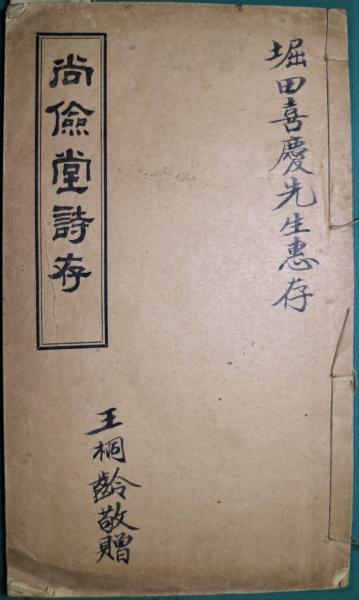 堀田喜慶先生惠存
尚儉堂詩存
王桐齡敬贈